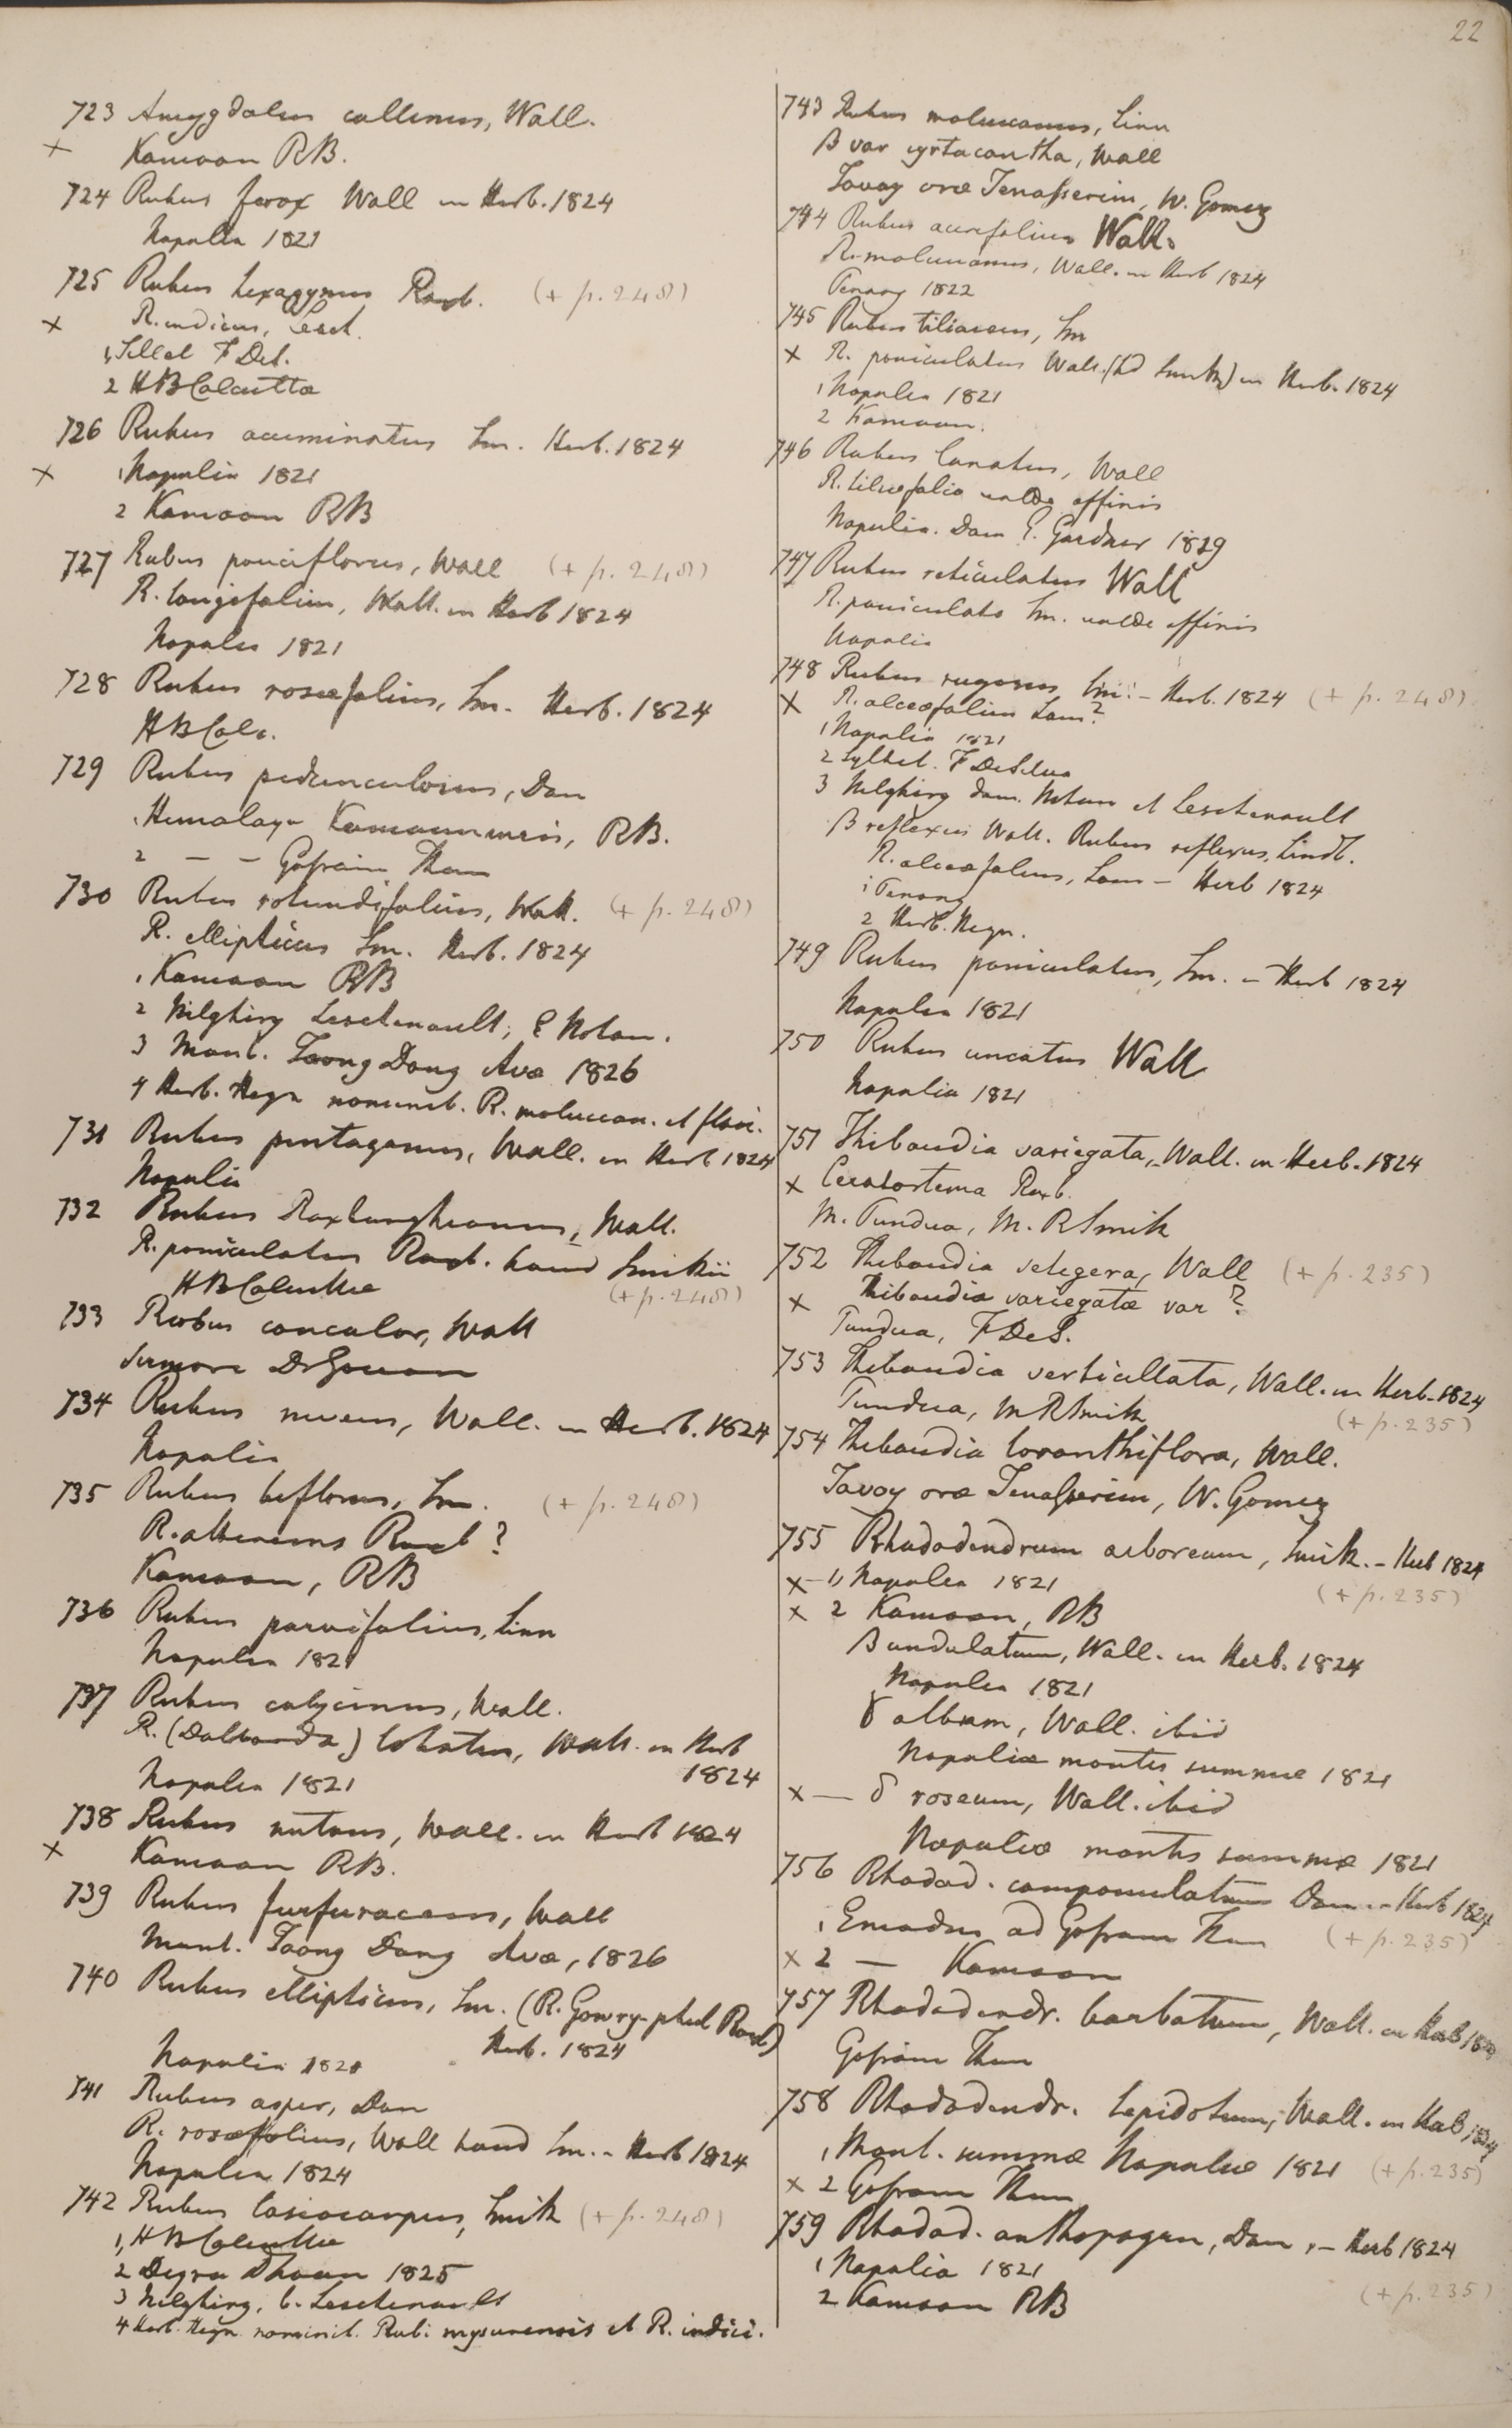 22
723 Amygdalus collinus, Wall.
× Kamaon RB.
724 Rubus ferox Wall in Herb. 1824
Napalia 1821
725 Rubus hexagynus Roxb. (+ p. 248)
× R. indicus, Lesch.
1, Sillet F Des.
2 HBCalcutta
726 Rubus acuminatus Sm. Herb. 1824
× 1 Napalia 1821
2 Kamaon RB
727 Rubus pauciflorus, Wall (+ p. 248)
R. longifolius, Wall. in Herb 1824
Napalia 1821
728 Rubus rosæfolius, Sm. Herb. 1824
HBCalc.
729 Rubus pedunculosus, Don
1 Himalaya Kamaonensis, RB.
2 — — Gosain Than
730 Rubus rotundifolius, Wall. (+ p. 248)
R. ellipticus Sm. Herb. 1824
1 Kamaon RB
2 Nilghiry Leschenault, & Noton.
3 Mont. Taong Dong Avæ 1826
4 Herb. Heyn nominib. R. moluccan. et flavi.
731 Rubus pentagonus, Wall. in Herb 1824
Napalia
732 Rubus Roxburghianus, Wall.
R. paniculatus Roxb. haud Smithii
HBCalcutta (+ p. 248)
733 Rubus concolor, Wall
Sirmore Dr Govan
734 Rubus niveus, Wall. in Herb. 1824
Napalia
735 Rubus biflorus, Sm. (+ p. 248)
R. attenuans Roxb ?
Kamaon, RB
736 Rubus parvifolius, Linn
Napalia 1821
737 Rubus calycinus, Wall.
R. (Dalibarda) lobatus, Wall. in Herb
Napalia 1821 1824
738 Rubus nutans, Wall. in Herb 1824
× Kamaon RB.
739 Rubus furfuraceus, Wall
Mont. Taong Dong Avæ, 1826
740 Rubus ellipticus, Sm. (R. Gowry-phul Roxb)
Napalia 1821 Herb. 1824
741 Rubus asper, Don
R. rosæfolius, Wall haud Sm. - Herb 1824
Napalia 1824
742 Rubus lasiocarpus, Smith (+ p. 248)
1, HBCalcutta
2 Deyra Dhoon 1825
3 Nilghiry, C. Leschenault
4 Herb. Heyn nominib. Rubi mysurensis et R. indici.
743 Rubus moluccanus, Linn
β var cyrtacantha, Wall
Tavoy oræ Tenasserim, W. Gomez
744 Rubus acerifolius Wall.
R. moluccanus, Wall. in Herb 1824
Penang 1822
745 Rubus tiliaceus, Sm
× R. paniculatus Wall. (Ed Smith) in Herb. 1824
1 Napalia 1821
2 Kamaon.
746 Rubus lanatus, Wall
R. tiliæfolio valde affinis
Napalia. Dom E. Gardner 1819
747 Rubus reticulatus Wall
R. paniculato Sm. valde affinis
Napalia
748 Rubus rugosus, Sm: - Herb. 1824 (+ p. 248)
× R. alceæfolius Lam?
1 Napalia 1821
2 Sylhet. F DeSilva
3 Nilghiry dom. Noton et Leschenault
β reflexus Wall. Rubus reflexus, Lindl.
R. alceæfolius, Lam - Herb 1824
1 Penang
2 Herb. Heyn.
749 Rubus paniculatus, Sm. - Herb 1824
Napalia 1821
750 Rubus uncatus Wall
Napalia 1821
751 Thibaudia variegata, Wall. in Herb. 1824
× Ceratostema Roxb.
M. Pundua, M. R Smith
752 Thibaudia setigera, Wall (+ p. 235)
× Thibaudia variegatæ var ?
Pundua, F DeS.
753 Thibaudia verticillata, Wall. in Herb. 1824
Pundua, M R Smith (+ p. 235)
754 Thibaudia loranthiflora, Wall.
Tavoy oræ Tenasserim, W. Gomez
755 Rhododendrum arboreum, Smith. - Herb 1824
×—1, Napalia 1821 (+ p. 235)
× 2 Kamaon, RB
β undulatum, Wall. in Herb. 1824
Napalia 1821
γ album, Wall. ibid
Napaliæ montis summæ 1821
×— δ roseum, Wall. ibid
Napaliæ montis summæ 1821
756 Rhodod. campanulatum Don - Herb 1824
1 Emodus ad Gosain Than (+ p. 235)
× 2 — Kamaon
757 Rhododendr. barbatum, Wall. in Herb 1824
Gosain Than
758 Rhododendr. lepidotum, Wall. in Herb 1824
1 Mont. summæ Napaliæ 1821 (+ p. 235)
× 2 Gosain Than
759 Rhodod. anthopogon, Don, - Herb 1824
1 Napalia 1821
2 Kamaon RB (+ p. 235)